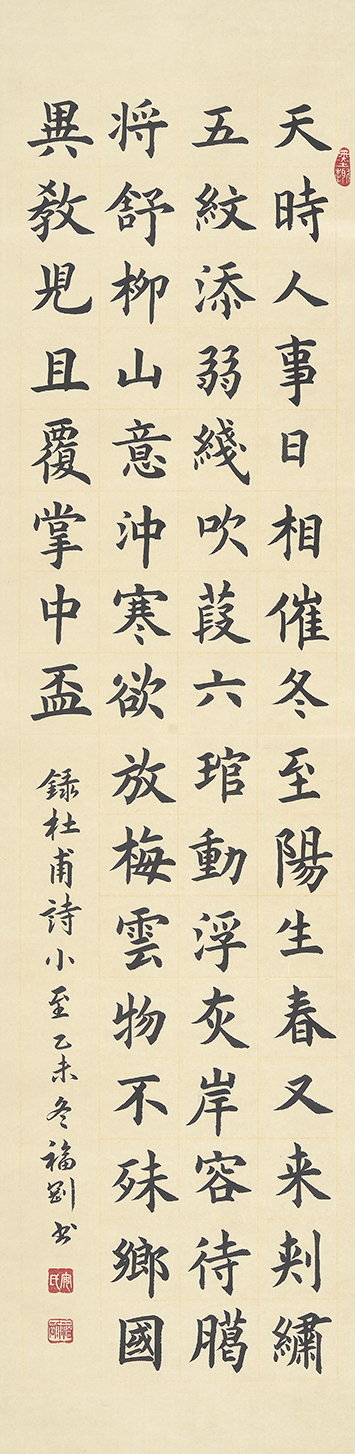 天時人事日相催冬至陽生春又来刾繡
五紋添弱綫吹葭六琯動浮灰岸容待臈
将舒柳山意沖寒欲放梅雲物不殊鄉國
異教児且覆掌中盃
録杜甫詩小至乙未冬福剛书